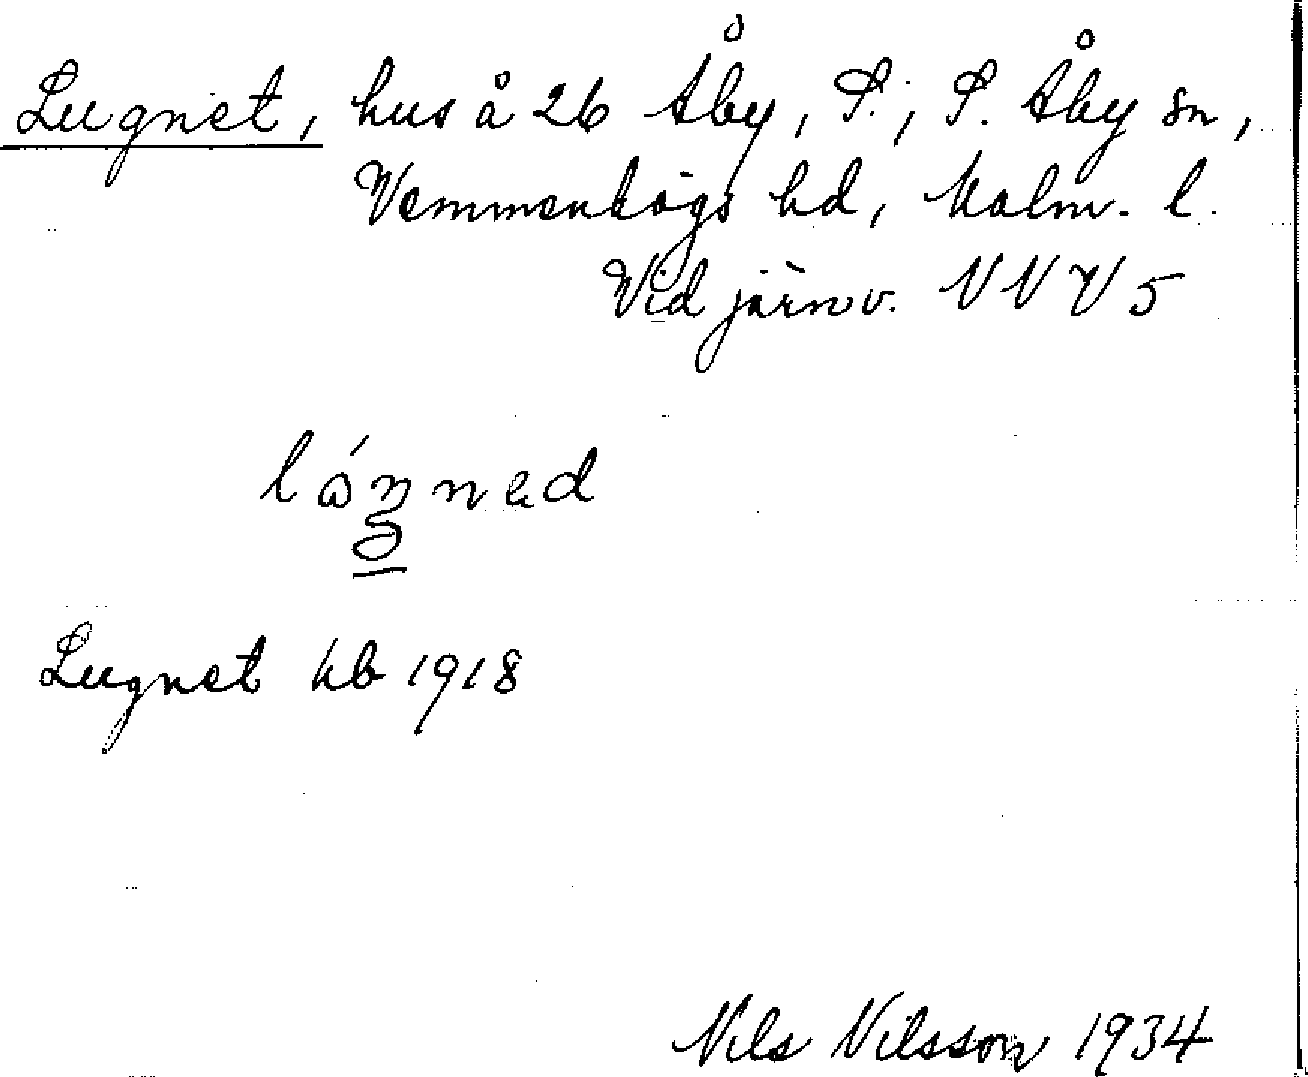 Lugnet, hus å 26 Åby, S., S. Åby sn,
Vemmenhögs hd, Malm. l.
Vid järnv. NNV 5
Lugnet kb 1918
Nils Nilsson 1934